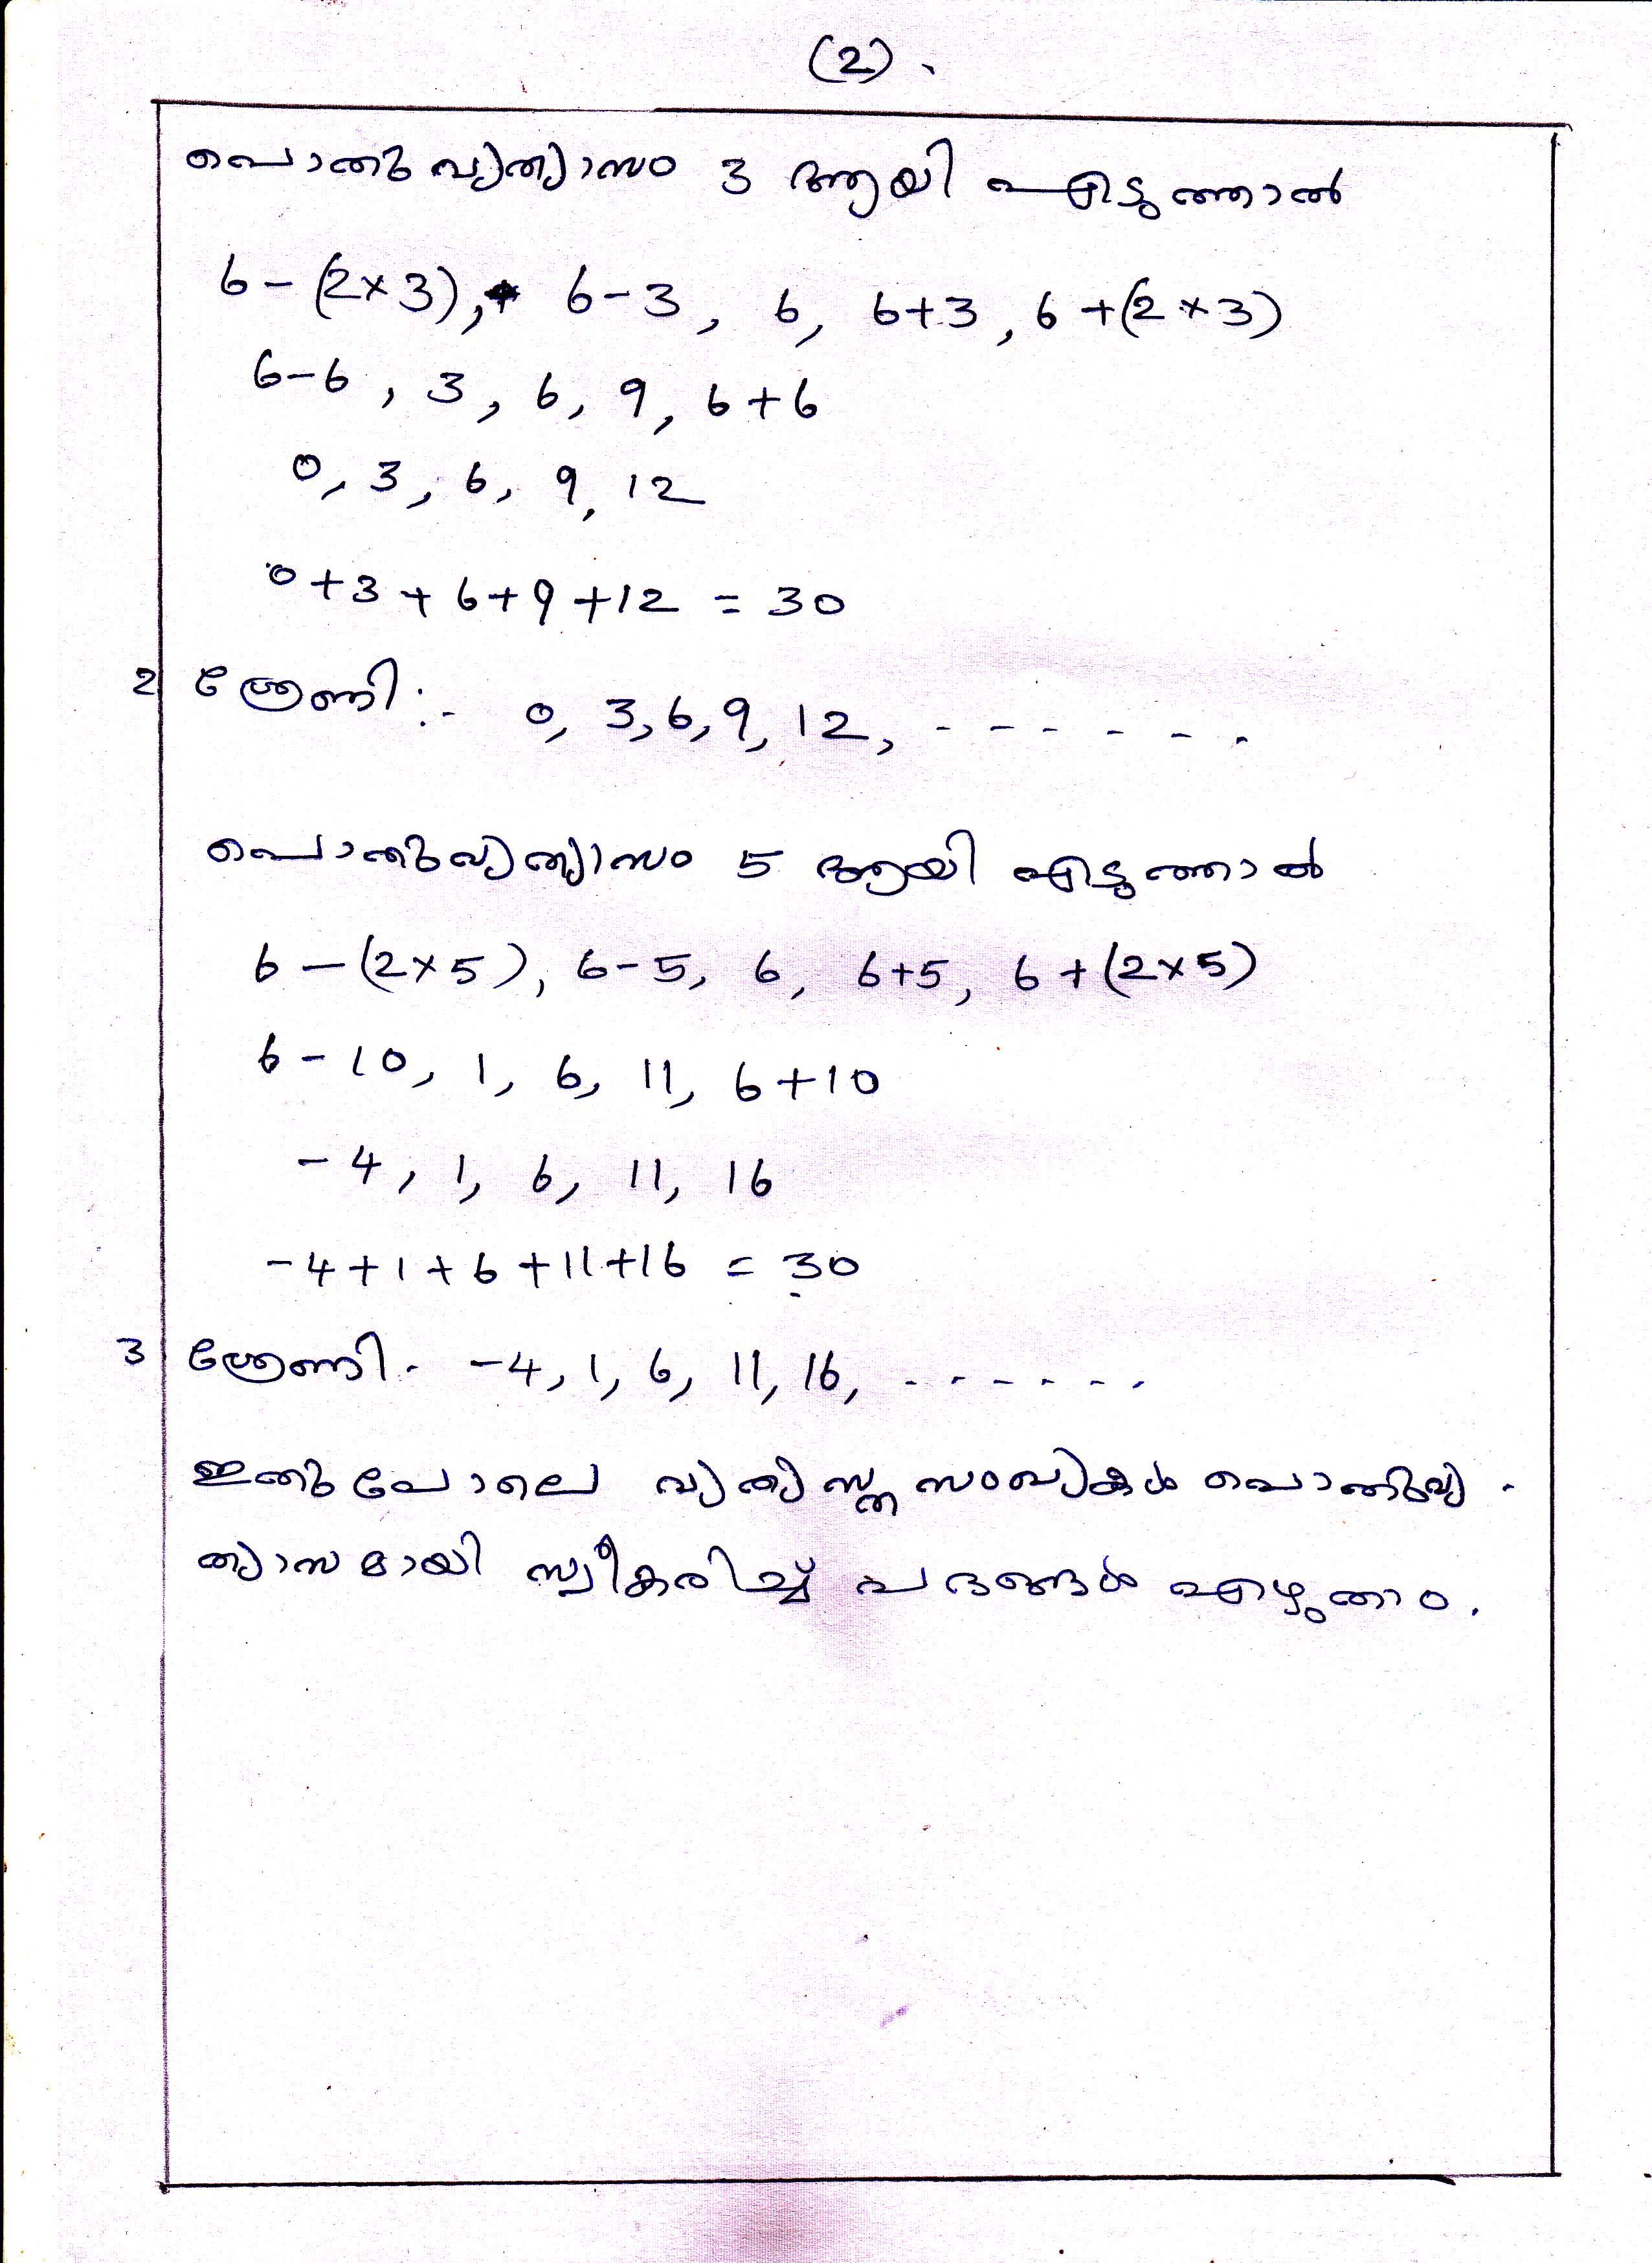 (2).
പൊതുവ്യത്യാസം 3 ആയി എടുത്താൽ
6-(2×3), 6-3, 6, 6+3, 6+(2×3)
6-6, 3, 6, 9, 6+6
0, 3, 6, 9, 12
0+3+6+9+12 = 30
2 ശ്രേണി:- 0, 3, 6, 9, 12, - - - - - -
പൊതുവ്യത്യാസം 5 ആയി എടുത്താൽ
6-(2×5), 6-5, 6, 6+5, 6+(2×5)
6-10, 1, 6, 11, 6+10
-4, 1, 6, 11, 16
-4+1+6+11+16 = 30
3 ശ്രേണി. -4, 1, 6, 11, 16, - - - - - -
ഇതുപോലെ വ്യത്യസ്ത സംഖ്യകൾ പൊതുവ്യ-
ത്യാസമായി സ്വീകരിച്ച് പദങ്ങൾ എഴുതാം.